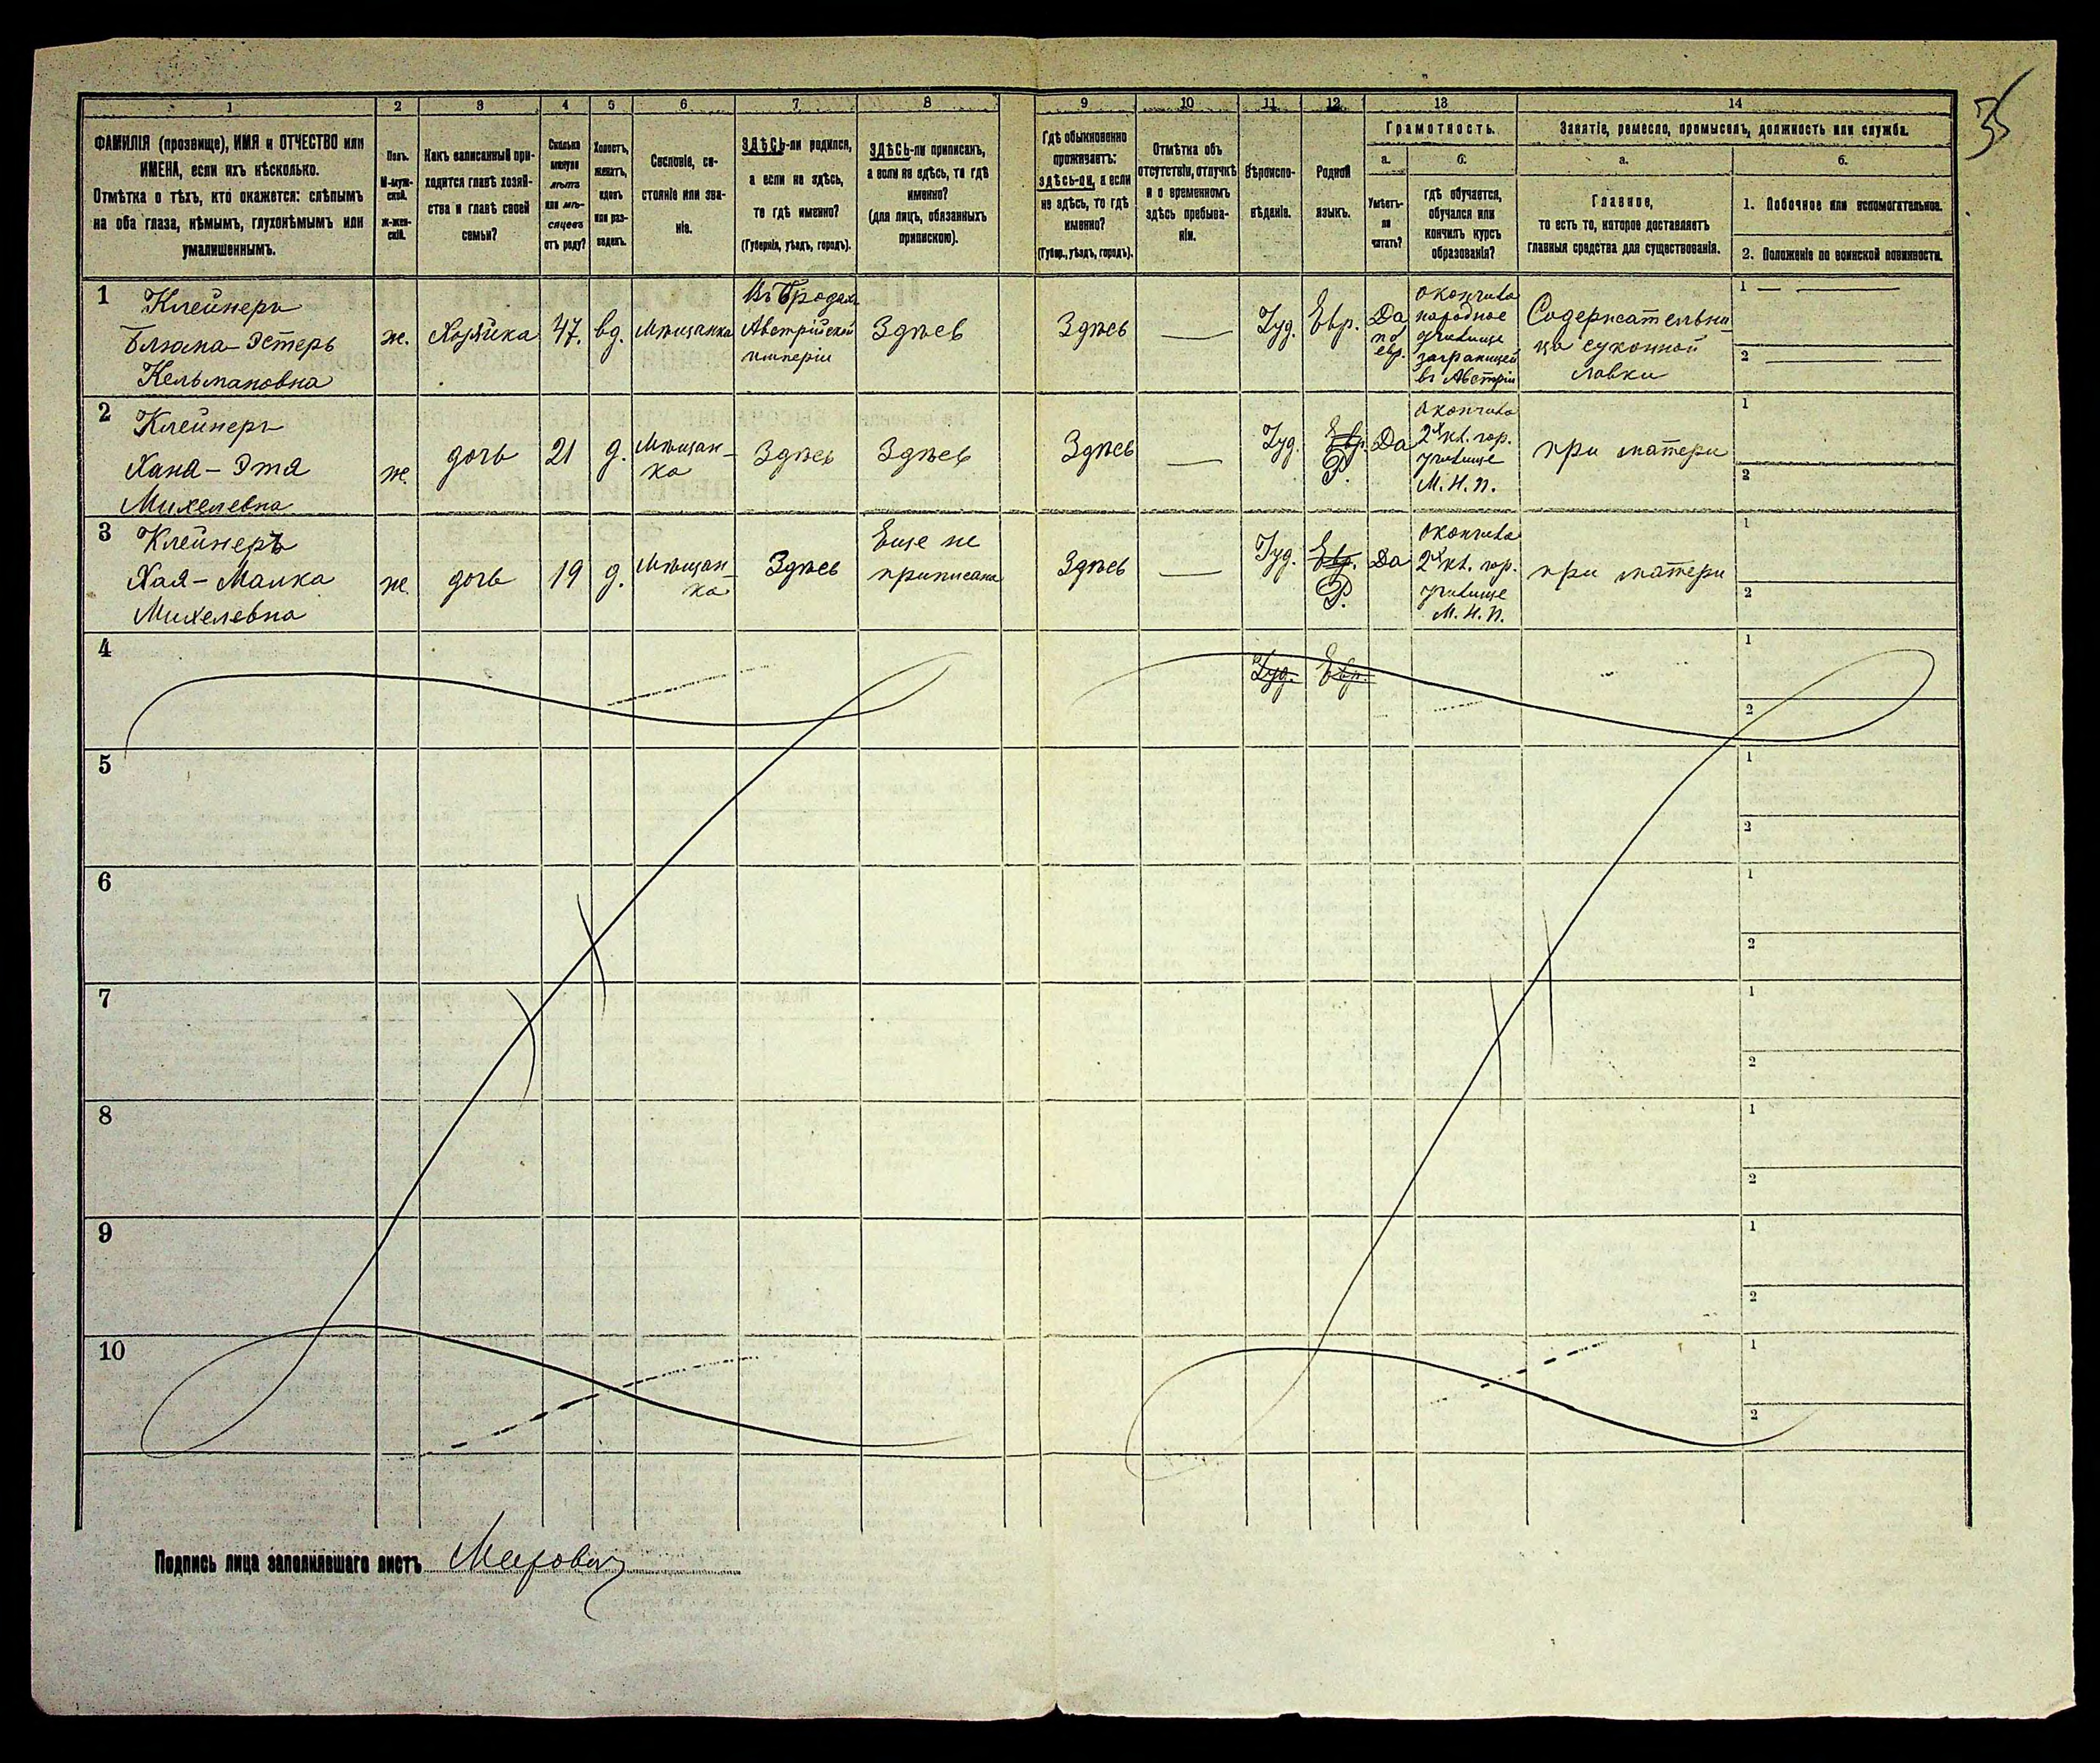 35
1 2 3 4 5 6 7 8 9 10 11 12 13 14
ФАМИЛІЯ (прозвище), ИМЯ и ОТЧЕСТВО или
ИМЕНА, если ихъ нѣсколько.
Отмѣтка о тѣхъ, кто окажется: слѣпымъ
на оба глаза, нѣмымъ, глухонѣмымъ или
умалишеннымъ.
Полъ.
М-муж-
ской.
ж-жен-
скій.
Какъ записанный при-
ходится главѣ хозяй-
ства и главѣ своей
семьи?
Сколько
минуло
лѣтъ
или мѣ-
сяцевъ
отъ роду?
Холостъ,
женатъ,
вдовъ
или раз-
веденъ.
Сословіе, со-
стояніе или зва-
ніе.
ЗДѢСЬ-ли родился,
а если не здѣсь,
то гдѣ именно?
(Губернія, уѣздъ, городъ).
ЗДѢСЬ-ли приписанъ,
а если не здѣсь, то гдѣ
именно?
(для лицъ, обязанныхъ
припискою).
Гдѣ обыкновенно
проживаетъ:
здѣсь-ли, а если
не здѣсь, то гдѣ
именно?
(Губер., уѣздъ, городъ).
Отмѣтка объ
отсутствіи, отлучкѣ
и о временномъ
здѣсь пребыва-
ніи.
Вѣроиспо-
вѣданіе.
Родной
языкъ.
Грамотность.
а.
Умѣетъ-
ли
читать?
б.
гдѣ обучается,
обучался или
кончилъ курсъ
образованія?
Занятіе, ремесло, промыселъ, должность или служба.
а.
Главное,
то есть то, которое доставляетъ
главныя средства для существованія.
б.
1. Побочное или вспомогательное.
2. Положеніе по воинской повинности.
1
Клейнеръ
Блюма-Эстеръ
Кельмановна
ж.
Хозяйка
47.
вд.
Мѣщанка
Въ Бродахъ
Австрійской
имперіи
Здѣсь
Здѣсь
Іуд.
Евр.
Да
по
евр.
окончила
народное
училище
заграницей
въ Австріи
Содержательни-
ца суконной
лавки
1
2
2
Клейнеръ
Хана-Этя
Михелевна
ж.
дочь
21
д.
Мѣщан-
ка
Здѣсь
Здѣсь
Здѣсь
Іуд.
Евр.
Р.
Да
окончила
2х кл. гор.
училище
М. Н. П.
при матери
1
2
3
Клейнеръ
Хая-Малка
Михелевна
ж.
дочь
19
д.
Мѣщан-
ка
Здѣсь
Еще не
приписана
Здѣсь
Іуд.
Евр.
Р.
Да
окончила
2х кл. гор.
училище
М. Н. П.
при матери
1
2
4
Іуд.
Евр.
1
2
5
1
2
6
1
2
7
1
2
8
1
2
9
1
2
10
1
2
Подпись лица заполнявшаго листъ